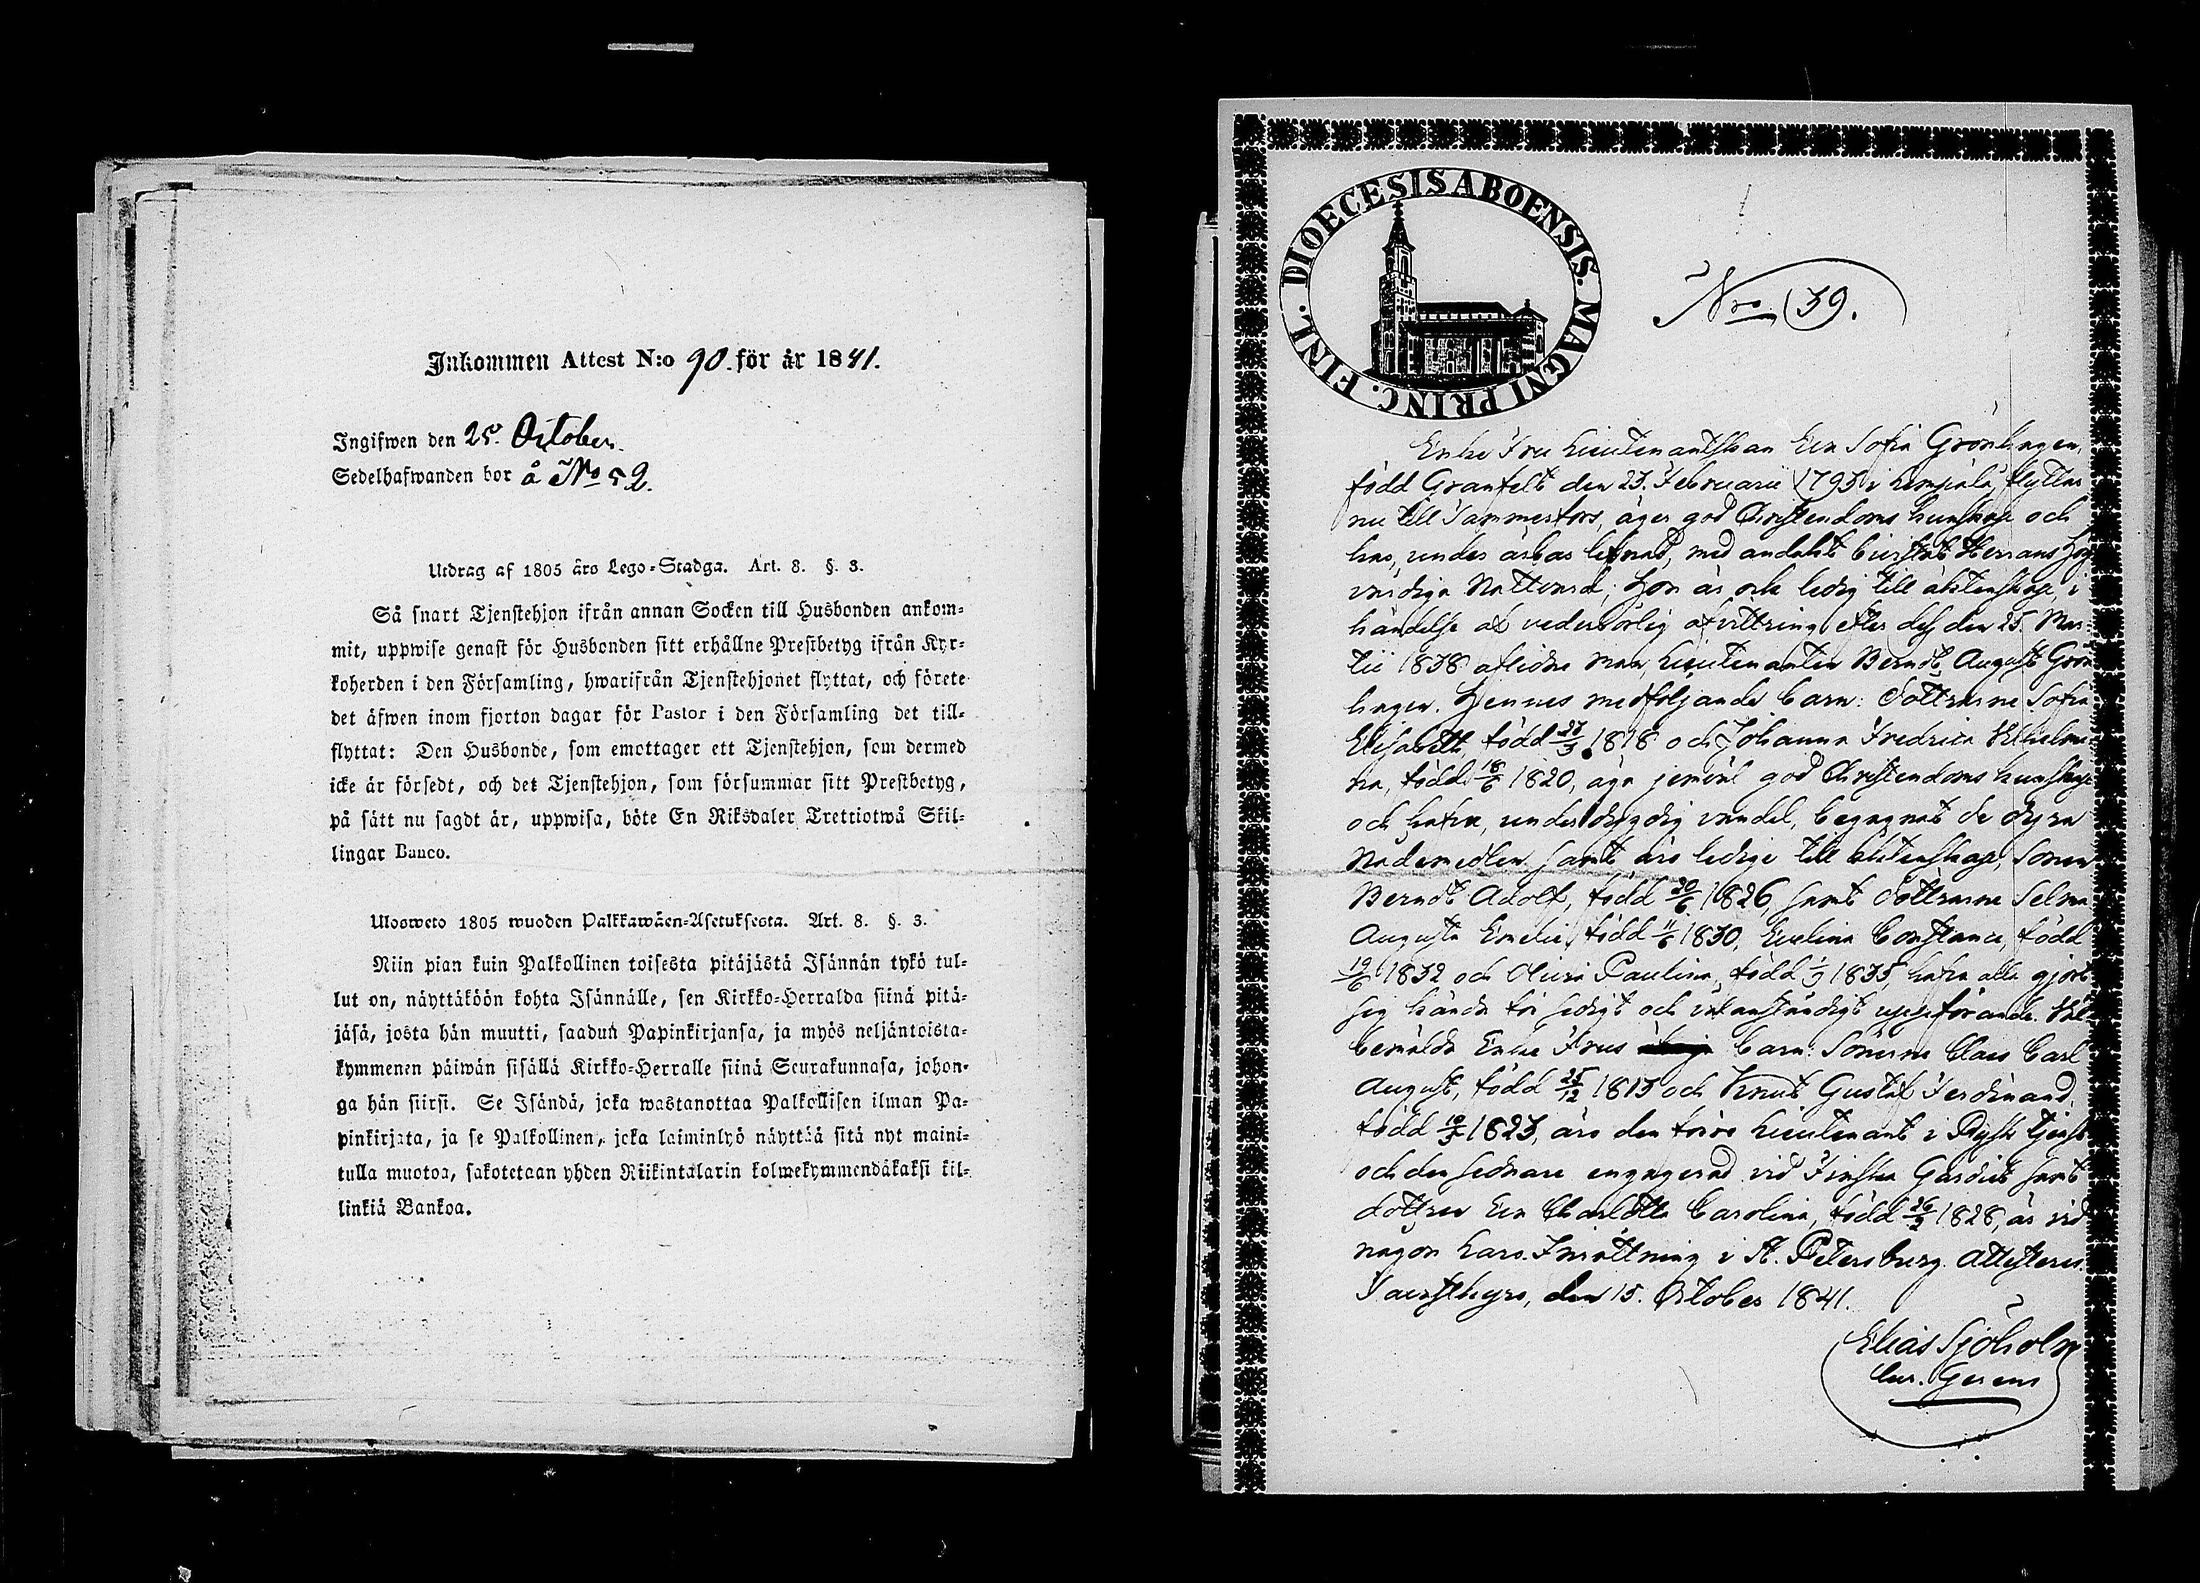 Inkommen Attest N:o 90. för år 1841.
Ingifwen den 25. October.
Sedelhafwanden bor å No 52.
Utdrag af 1805 års Lego-Stadga. Art. 8. §. 3.
Så snart Tjenstehjon ifrån annan Socken till Husbonden ankom-
mit, uppwise genast för Husbonden sitt erhållne Prestbetyg ifrån Kyr-
koherden i den Församling, hwarifrån Tjenstehjonet flyttat, och förete
det äfwen inom fjorton dagar för Pastor i den Församling det till-
flyttat: Den Husbonde, som emottager ett Tjenstehjon, som dermed
icke är försedt, och det Tjenstehjon, som försummar sitt Prestbetyg,
på sätt nu sagdt är, uppwisa, böte En Riksdaler Trettiotwå Skil-
lingar Banco.
Ulosweto 1805 wuoden Palkkawäen-Asetuksesta. Art. 8. §. 3.
Niin pian kuin Palkollinen toisesta pitäjästä Isännän tykö tul-
lut on, näyttäköön kohta Isännälle, sen Kirkko-Herralda siinä pitä-
jäsä, josta hän muutti, saadun Papinkirjansa, ja myös neljäntoista-
kymmenen päiwän sisällä Kirkko-Herralle siinä Seurakunnasa, johon-
ga hän siirsi. Se Isändä, joka wastanottaa Palkollisen ilman Pa-
pinkirjata, ja se Palkollinen, joka laiminlyö näyttää sitä nyt maini-
tulla muotoa, sakotetaan yhden Riikintalarin kolmekymmendäkaksi kil-
linkiä Bankoa.
DIOECESIS ABOENSIS. MAGNI PRINC. FINL.
Nro 39.
Enke Fru Lieutenantskan Eva Sofia Grönhagen,
född Granfelt den 23. Februarii 1793 i Lempälä, flyttar
nu till Tammerfors, äger god Christendoms kunskap och
har, under ärbar lefnad, med andakt bevistat Herrans Hög-
värdiga Nattvard; Hon är ock ledig till äktenskap, i
händelse af vederbörlig afvittring efter dess den 25. Mar-
tii 1838 aflidne Man, Lieutenanten Berndt August Grön
hagen. Hennes medföljande barn: Döttrarne Sofia
Elisabeth, född 1818 och Johanna Fredrica Vilhelmi-
na, född 18/6 1820, äga jemväl god Christendoms kunskap
och hafva, under dygdig vandel, begagnat de dyra
Nådemedlen samt äro lediga till äktenskap, Sonen
Berndt Adolf, född 20/6 1826, samt Döttrarne Selma
Augusta Emelie, född 11/6 1830, Evelina Constance, född
19/6 1832 och Paulina, född 1835, hafva alla gjort
sig kända för sedigt och välanständigt uppförande. Väl-
bemälda Enke Frus barn: Sönerne Claes Carl
August, född 25/12 1813 och Knut Gustaf Ferdinand,
född 1823, äro den förre Lieutenant i Rysk tjenst
och den sednare engagerad vid Finska Gardiet samt
dottren Eva Charlotta Carolina, född 1828, är vid
någon Läro-Inrättning i St. Petersburg. Attesteras.
Tavastkyro, den 15. October 1841.
Elias Sjöholm
Cur. Gerens